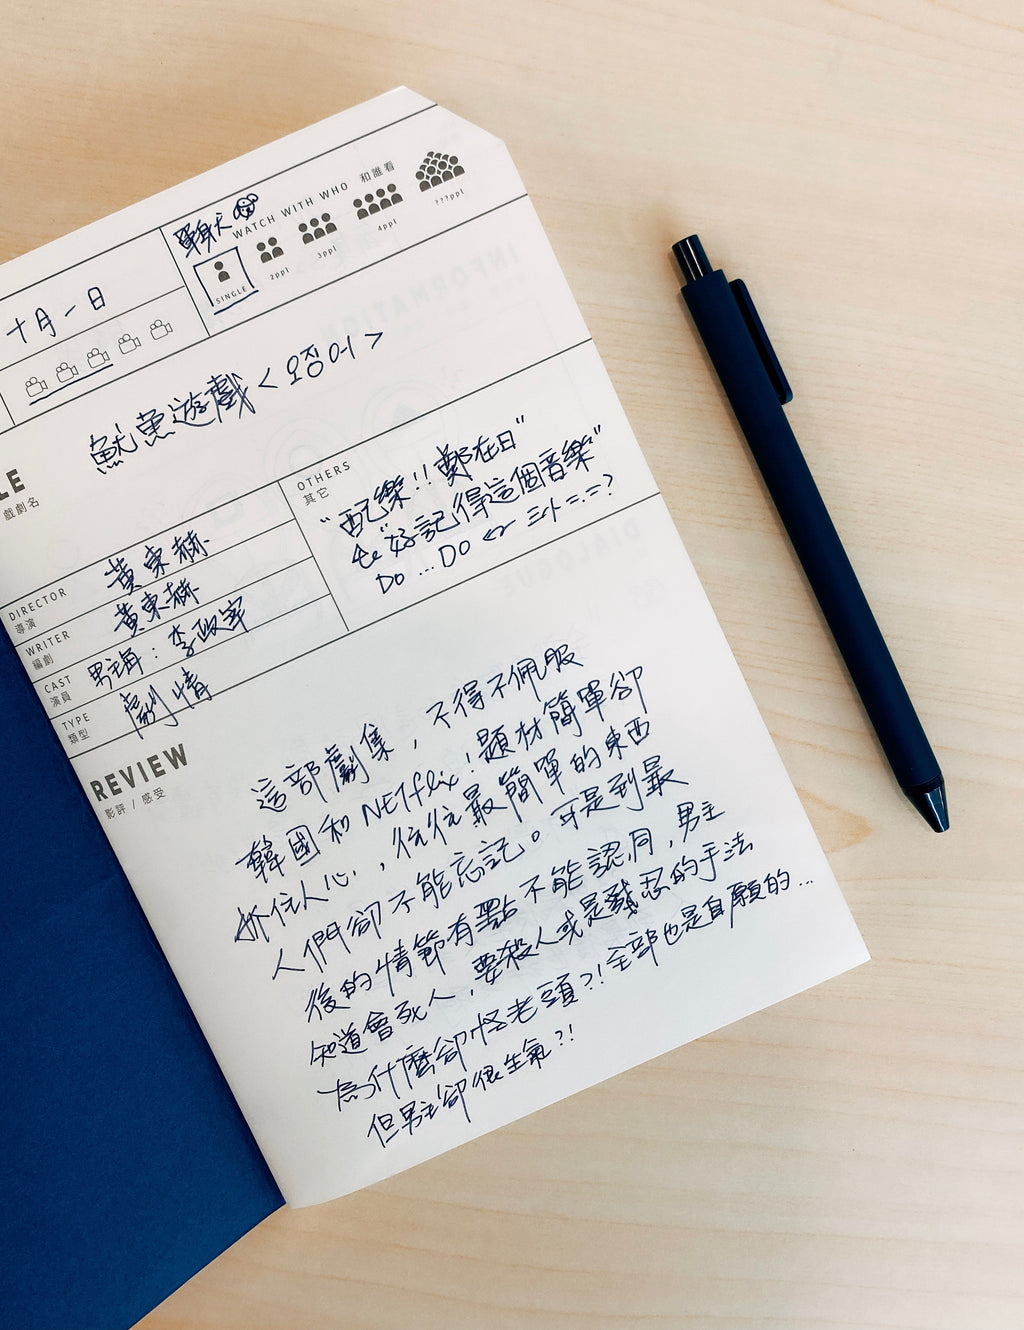 WATCH WITH WHO 和誰看
SINGLE
2ppl
3ppl
4ppl
???ppl
十月一日
魷魚遊戲 < 오징어 >
LE
戲劇名
OTHERS
其它
"配樂!! 鄭在日"
"好記得這個音樂"
DO ... DO
DIRECTOR
導演
黃東赫
WRITER
編劇
黃東赫
CAST
演員
男主角：李政宰
TYPE
類型
劇情
REVIEW
影評 / 感受
這部劇集，不得不佩服
韓國和 NETflix！題材簡單卻
抓住人心，往往最簡單的東西
人們卻不能忘記。可是到最
後的情節有點不能認同，男主
知道會死人，要殺人或是殘忍的手法
為什麼卻怪老頭?! 全部也是自願的...
但男主卻很生氣?!